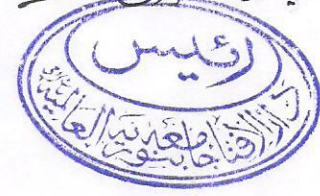 رئيس
دارالافتاء جامعه بنوریه العالمیه